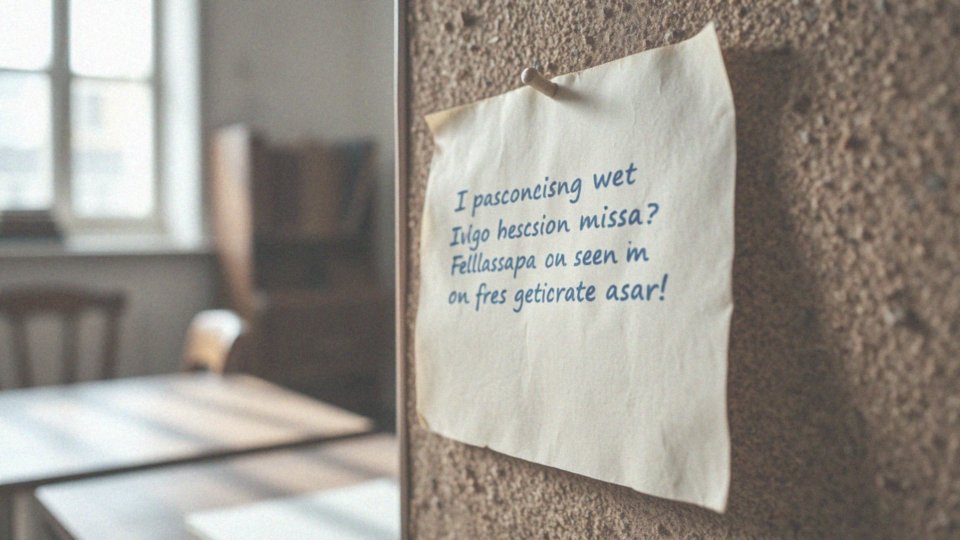 I pasconcisng wet
Ivlgo hescsion missa?
Felllassapa on seen in
on fres geticrate asar!